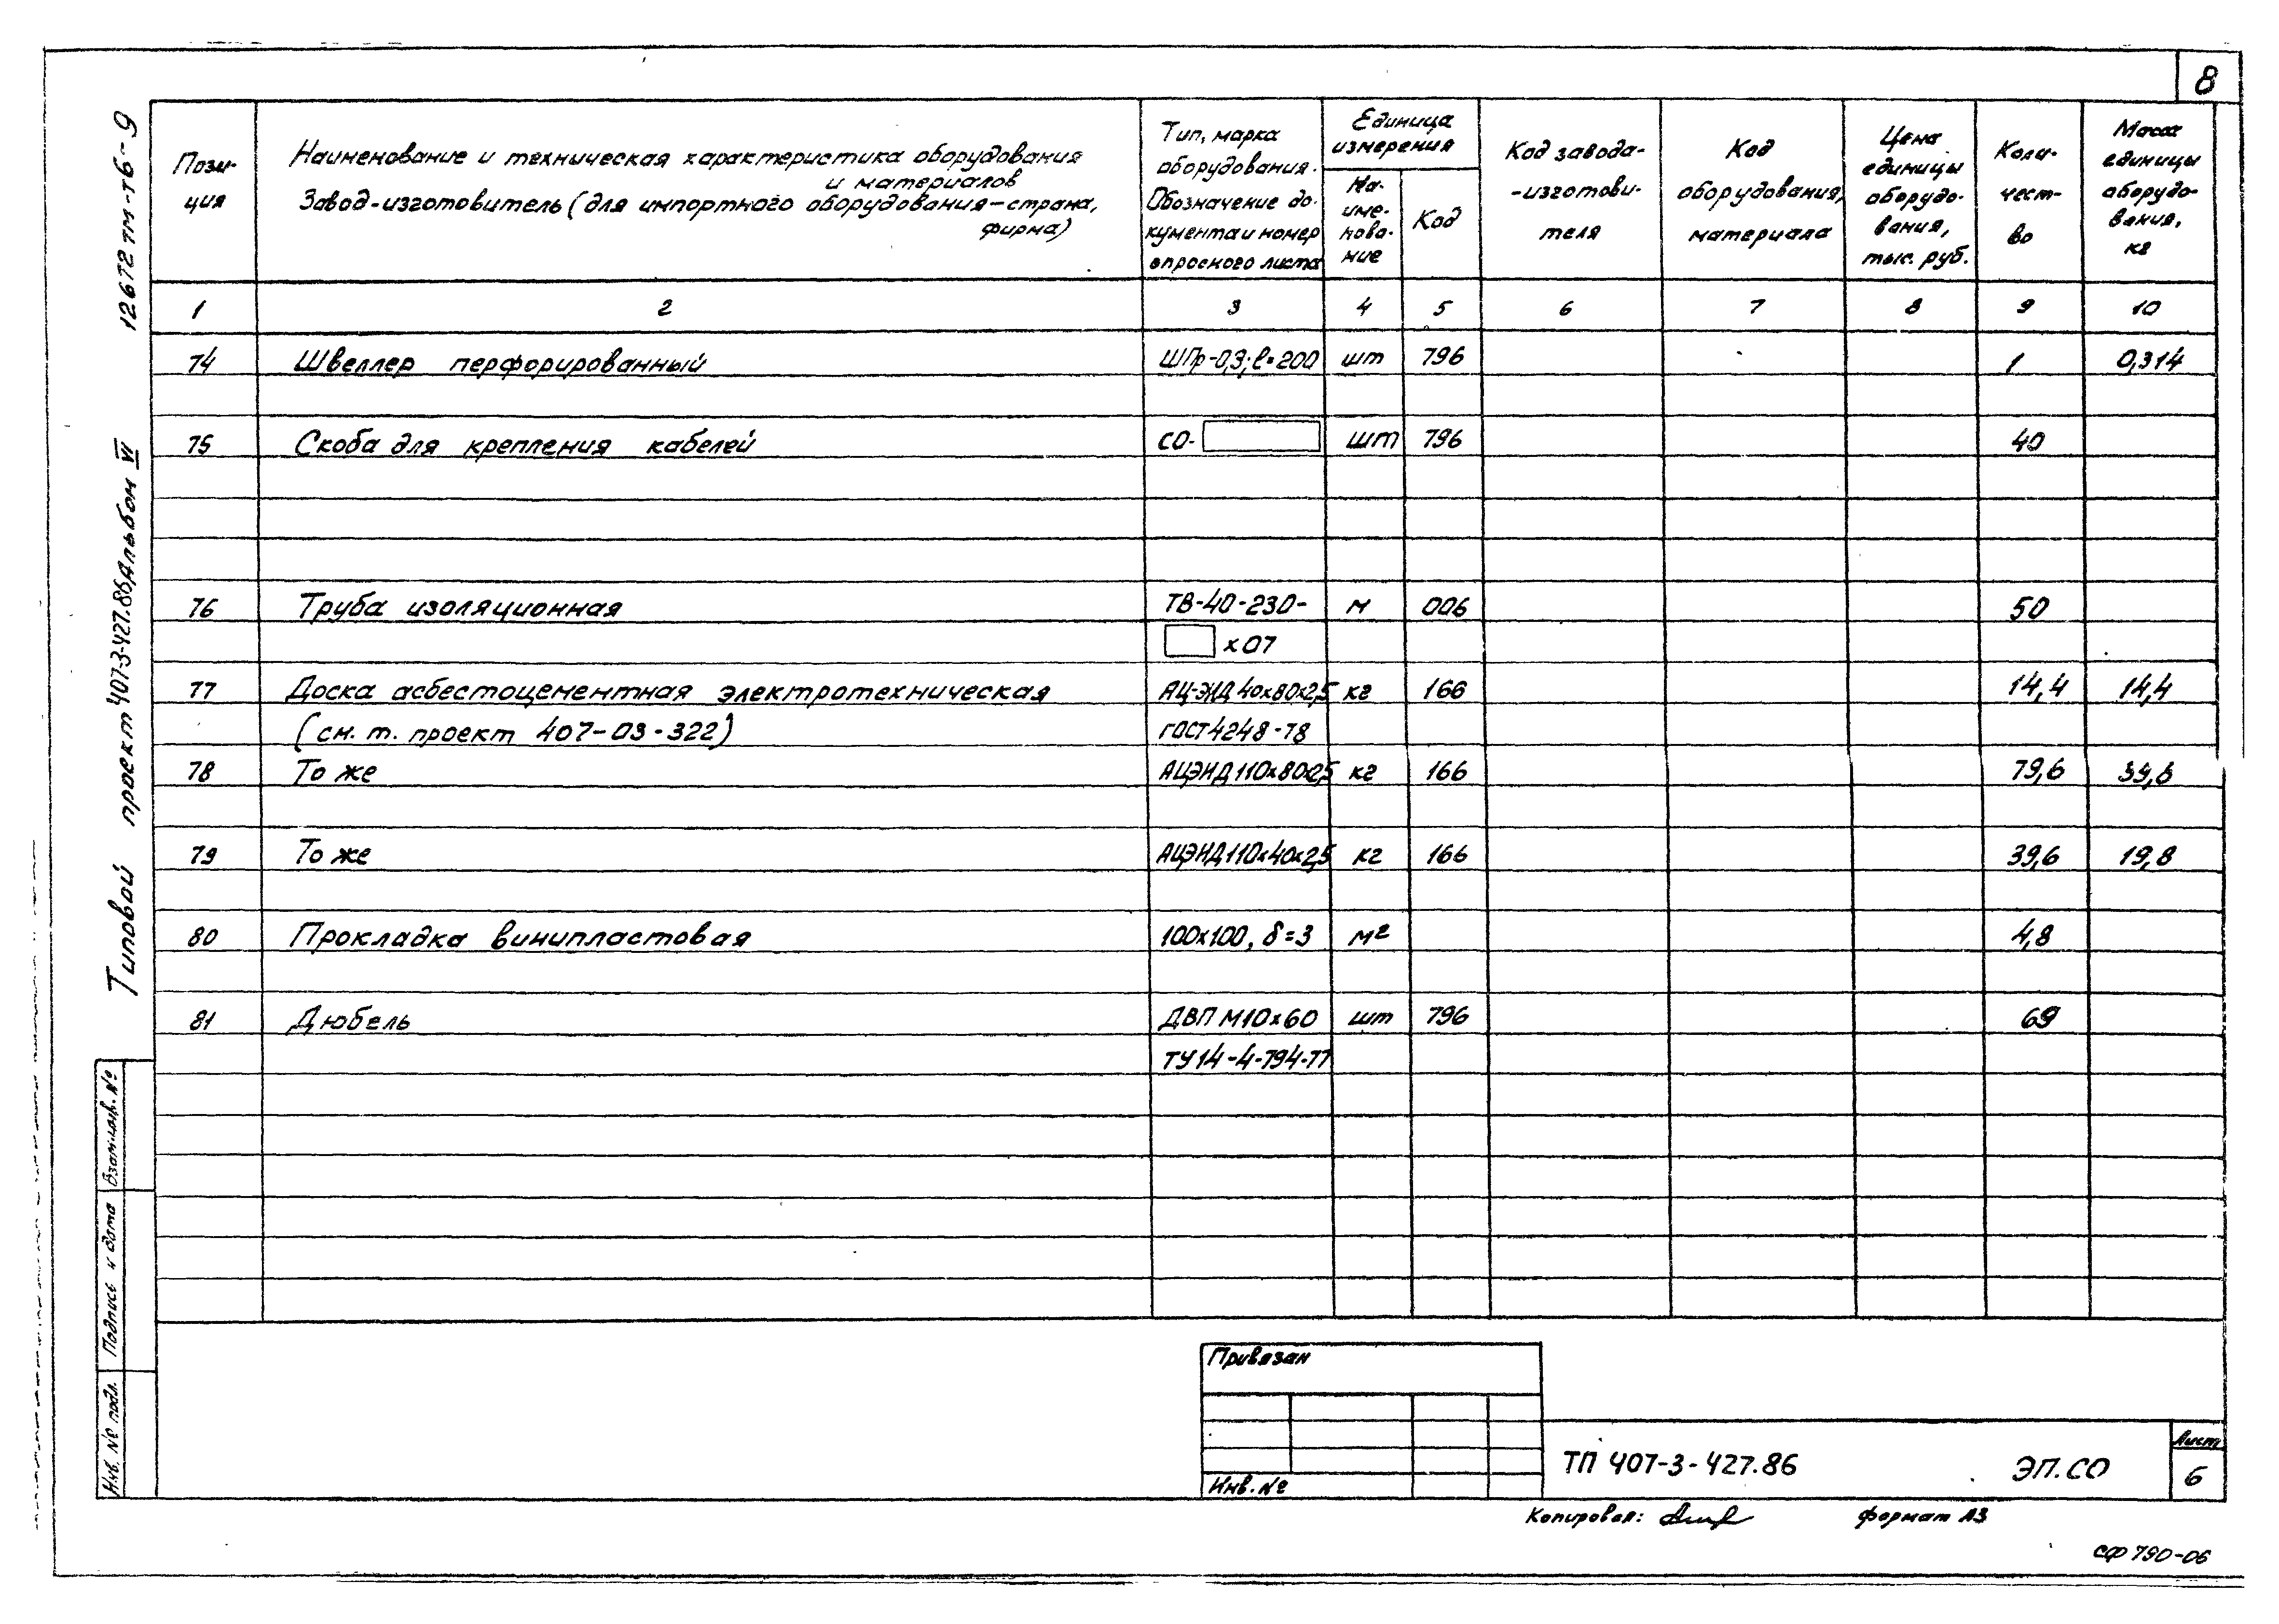 8
12672тм-т6-9
Типовой проект 407-3-427.86 Альбом VI
Взам.инв. №
Подпись и дата
Инв. № подл.
Пози-
ция
Наименование и техническая характеристика оборудования
и материалов
Завод-изготовитель (для импортного оборудования-страна,
фирма)
Тип, марка
оборудования.
Обозначение до-
кумента и номер
опросного листа
Единица
измерения
На-
име-
нова-
ние
Код
Код завода-
-изготови-
теля
Код
оборудования,
материала
Цена
единицы
оборудо-
вания,
тыс. руб.
Коли-
чест-
во
Масса
единицы
оборудо-
вания,
кг
1 2 3 4 5 6 7 8 9 10
74 Швеллер перфорированный ШПр-0,3; l=200 шт 796 1 0,314
75 Скоба для крепления кабелей СО- шт 796 40
76 Труба изоляционная ТВ-40-230- м 006 50
х07
77 Доска асбестоцементная электротехническая АЦ-ЭИД 40х80х2,5 кг 166 14,4 14,4
(см. т. проект 407-03-322) ГОСТ 4248-78
78 То же АЦЭИД 110х80х2,5 кг 166 79,6
79 То же АЦЭИД 110х40х2,5 кг 166 39,6 19,8
80 Прокладка винипластовая 100х100, δ=3 м2 4,8
81 Дюбель ДВП М10х60 шт 796 69
ТУ14-4-794-77
Привязан
Инв. №
ТП 407-3-427.86 ЭП.СО
Лист
6
Копировал: формат А3
СФ 790-06